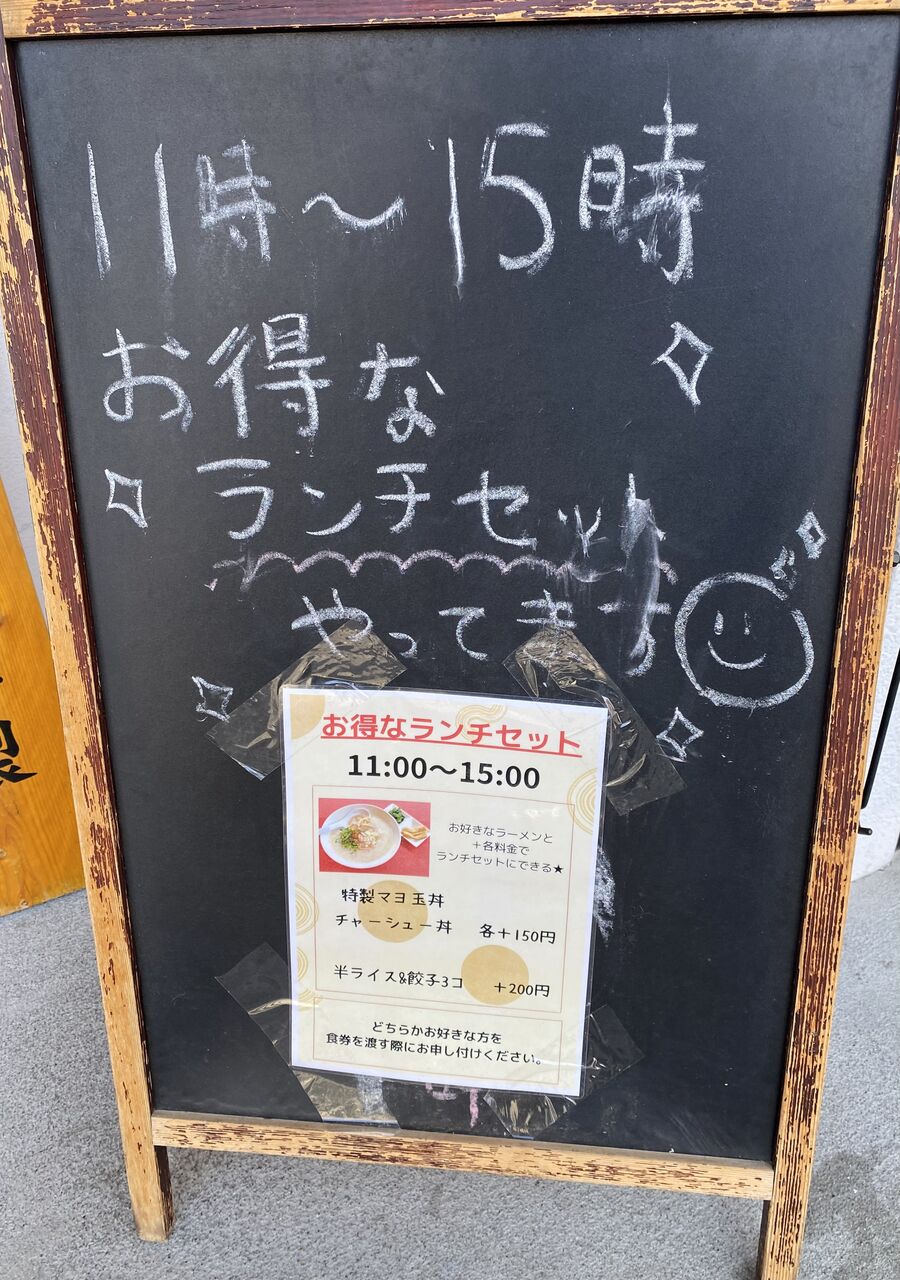 11時～15時
お得な
ランチセット
やってます
お得なランチセット
11:00～15:00
お好きなラーメンと
＋各料金で
ランチセットにできる★
特製マヨ玉丼
チャーシュー丼 各＋150円
半ライス&餃子3コ ＋200円
どちらかお好きな方を
食券を渡す際にお申し付けください。